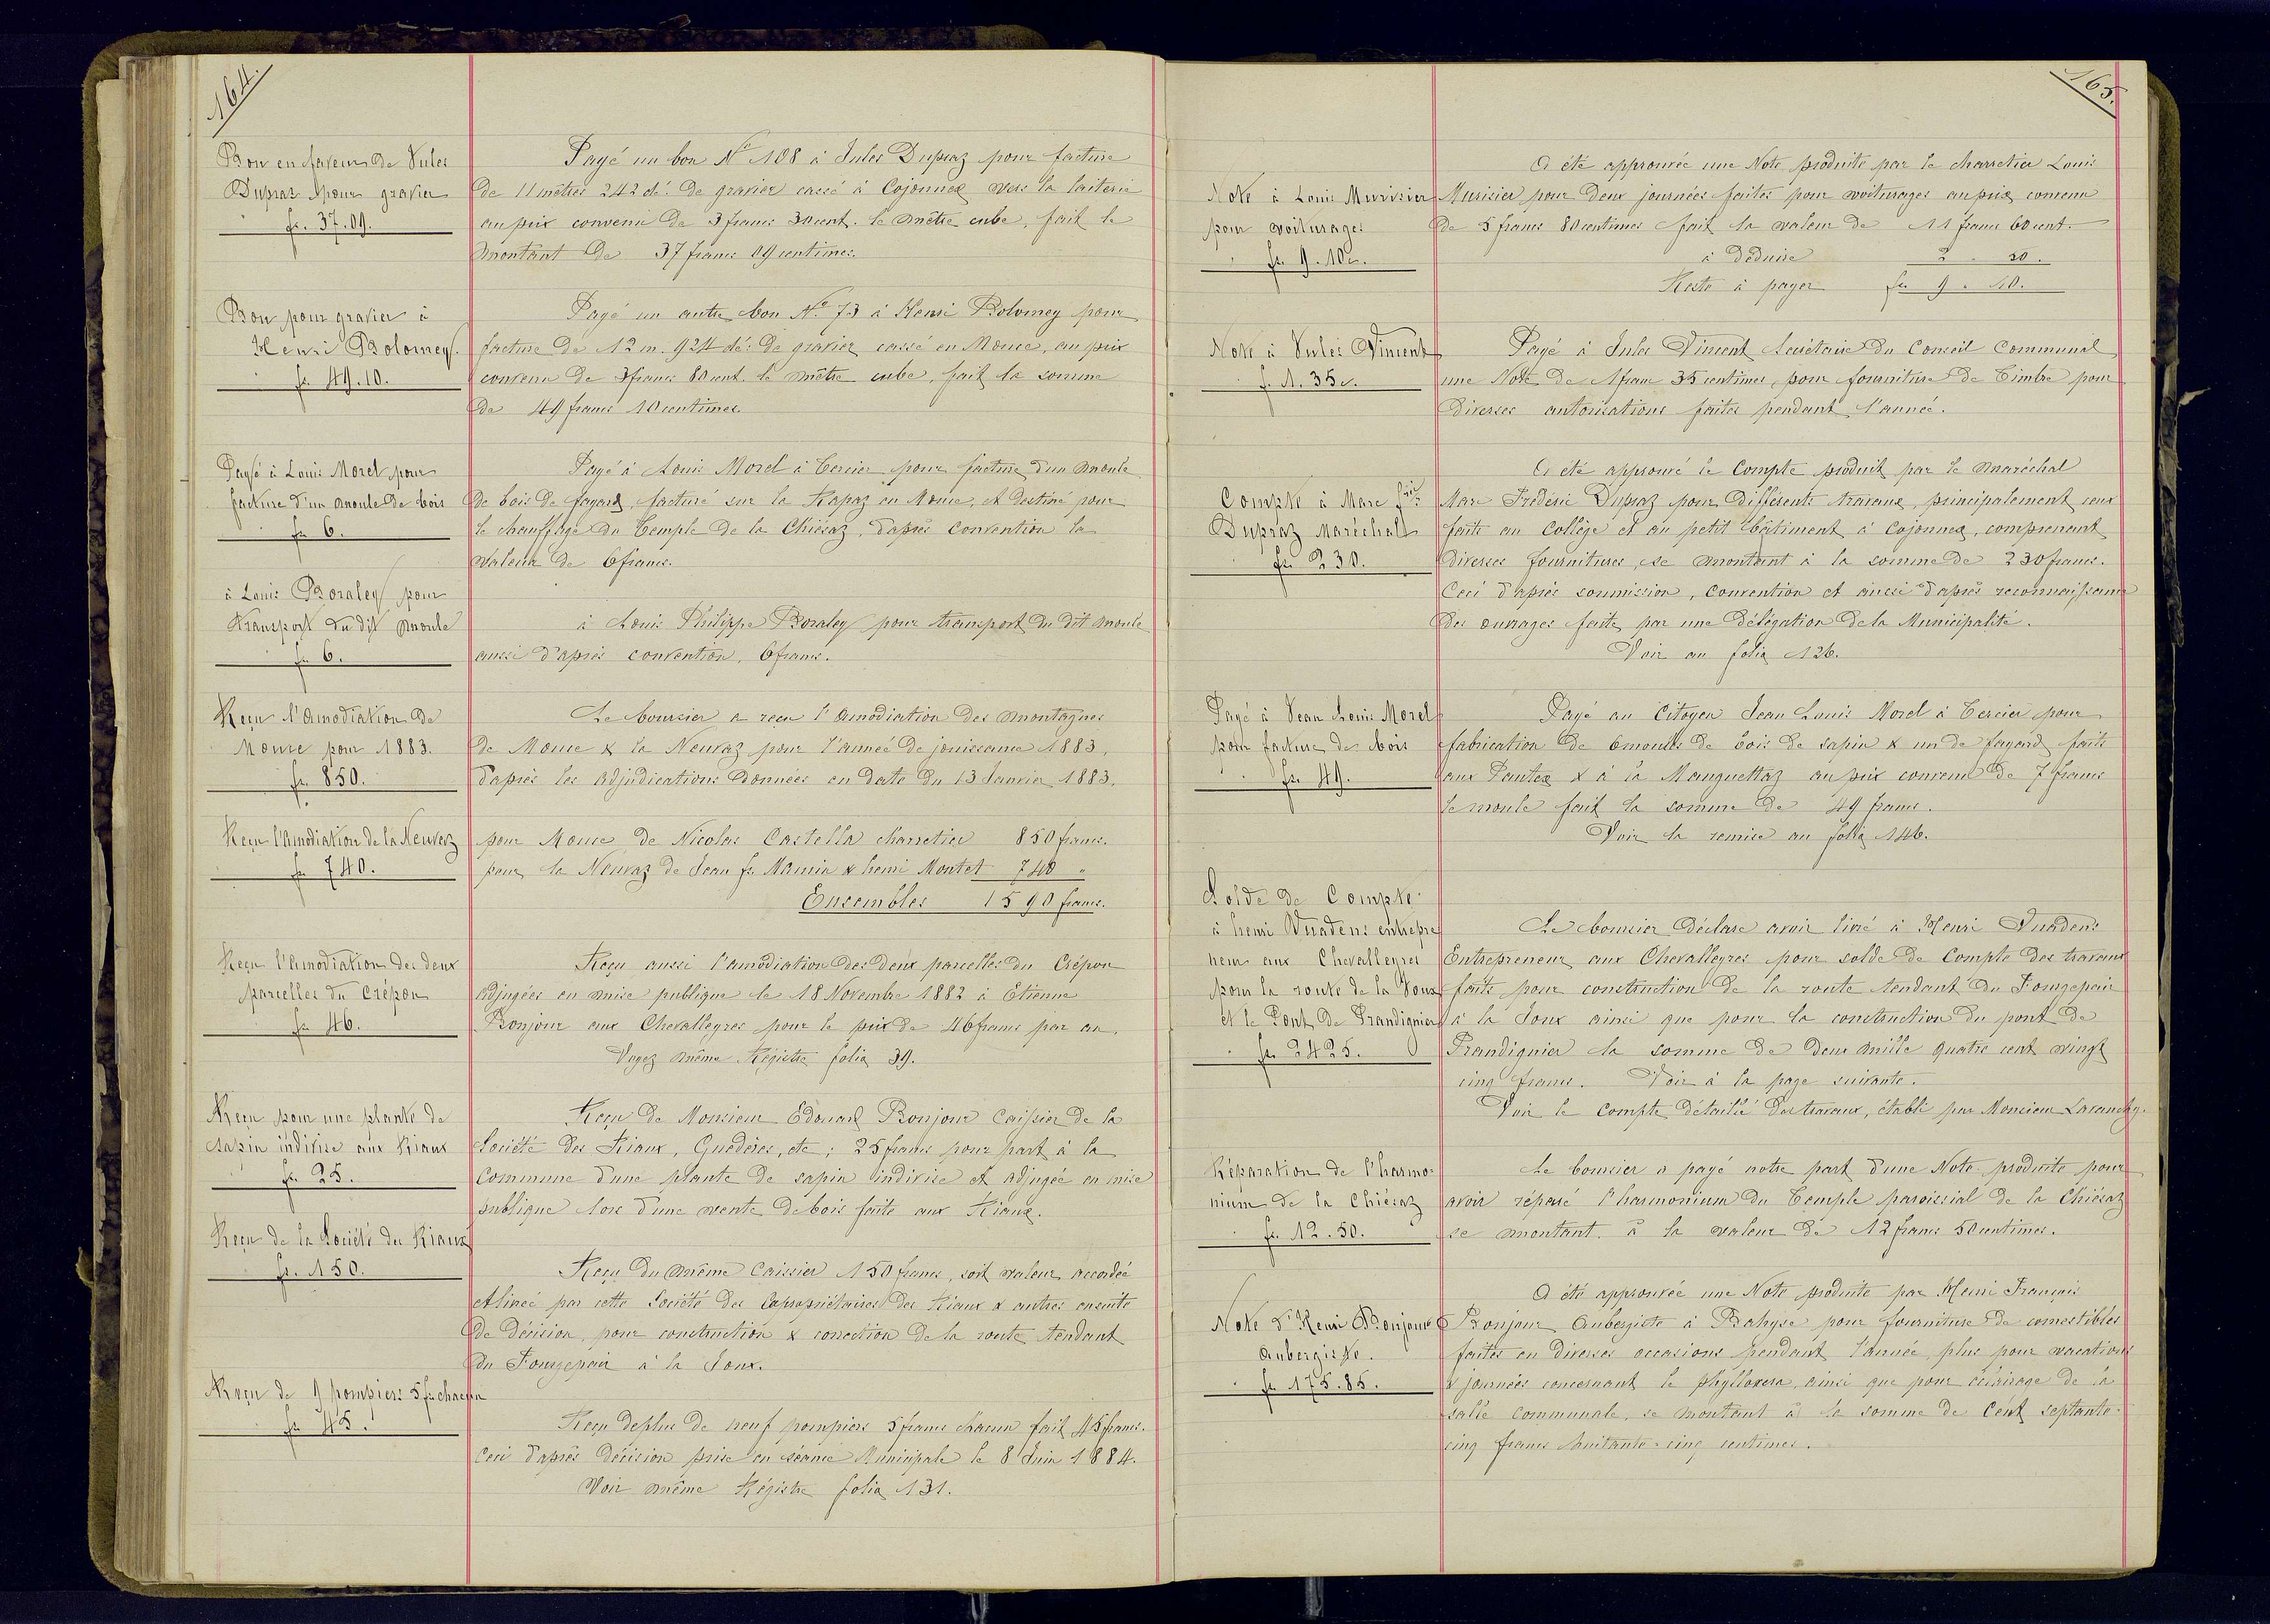 164.
Bon en faveur de Jules
Dupraz pour gravier
fr. 37.09.
Payé un bon N° 108 à Jules Dupraz pour facture
de 11 mètres 242 dé: de gravier cassé à Cojonnex vers la laiterie
au prix convenu de 3 francs 30 cent. le mètre cube, fait le
montant de 37 francs 09 centimes.
Bon pour gravier à
Henri Bolomey.
fr. 49.10.
Payé un autre bon N° 73 à Henri Bolomey pour
facture de 12 m. 924 dé: de gravier cassé en Monce, au prix
convenu de 3 francs 80 cent. le mètre cube, fait la somme
de 49 francs 10 centimes.
Payé à Louis Morel pour
facture d'un moule de bois
fr. 6.
Payé à Louis Morel à Cercier pour facture d'un moule
de bois de fayard, facturé sur la Rapaz en Monce, et destiné pour
le chauffage du Temple de la Chiésaz, d'après convention la
valeur de 6 francs.
à Louis Boraley pour
transport du dit moule
fr. 6.
à Louis Philippe Boraley pour transport du dit moule
aussi d'après convention, 6 francs.
Reçu l'amodiation de
Monce pour 1883.
fr. 850.
Le boursier a reçu l'amodiation des montagnes
de Monce & la Neuvaz pour l'année de jouissance 1883,
d'après les adjudications données en date du 13 Janvier 1883.
Reçu l'amodiation de la Neuvaz
fr. 740.
pour Monce de Nicolas Castella charretier 850 francs.
pour la Neuvaz de Jean fs Mamin & henri Montet 740 "
Ensembles 1590 francs.
Reçu l'amodiation des deux
parcelles du Crépon
fr. 46.
Reçu aussi l'amodiation des deux parcelles du Crépon
adjugées en mise publique le 18 Novembre 1882 à Etienne
Bonjour aux Chevalleyres pour le prix de 46 francs par an.
Voyez même Régistre folio 39.
Reçu pour une plante de
sapin indivise aux Riaux
fr. 25.
Reçu de Monsieur Edouard Bonjour Caissier de la
Société des Riaux, Guedères, etc; 25 francs pour part à la
Commune d'une plante de sapin indivise et adjugée en mise
publique lors d'une vente de bois faite aux Riaux.
Reçu de la Société des Riaux
fr. 150.
Reçu du même Caissier 150 francs, soit valeur accordée
et livrée par cette Société des Copropriétaires des Riaux & autres ensuite
de décision, pour construction & correction de la route tendant
du Fougepair à la Joux.
Reçu de 9 pompiers 5 fr. chacun
fr. 45.
Reçu deplus de neuf pompiers 5 francs chacun fait 45 francs.
Ceci d'après décision prise en séance Municipale le 8 Juin 1884.
Voir même Régistre folio 131.
165.
Note à Louis Murisier
pour voiturages
fr. 9.10c.
A été approuvée une Note produite par le charretier Louis
Murisier pour deux journées faites pour voiturages au prix convenu
de 5 francs 80 centimes fait la valeur de 11 francs 60 cent.
à déduire 2 . 50.
Reste à payer fr. 9 . 10.
Note à Jules Vincent
fr. 1.35c.
Payé à Jules Vincent Secrétaire du Conseil Communal
une Note de 1 franc 35 centimes, pour fourniture de Timbre pour
diverses autorisations faites pendant l'année.
Compte à Marc fric
Dupraz Maréchal
fr. 230.
A été approuvé le Compte produit par le maréchal
Marc Frédéric Dupraz pour différents travaux, principalement ceux
faits au Collège et au petit bâtiment à Cojonnex, comprenant
diverses fournitures, se montant à la somme de 230 francs.
Ceci d'après soumission, convention et aussi d'après reconnaissance
des ouvrages faite par une délégation de la Municipalité.
Voir au folio 126.
Payé à Jean Louis Morel
pour facture de bois
fr. 49.
Payé au Citoyen Jean Louis Morel à Cercier pour
fabrication de 6 moules de bois de sapin & un de fayard faits
aux Pautex & à la Manguettaz au prix convenu de 7 francs
le moule fait la somme de 49 francs.
Voir la remise au folio 146.
Solde de Compte
à henri Vuadens entrepre
neur aux Chevalleyres
pour la route de la Joux
et le Pont de Prandignier
fr. 2425.
Le boursier déclare avoir livré à Henri Vuadens
Entrepreneur aux Chevalleyres pour solde de Compte des travaux
faits pour construction de la route tendant du Fougepair
à la Joux ainsi que pour la construction du pont de
Prandignier la somme de deux mille quatre cent vingt
cinq francs. Voir à la page suivante.
Voir le Compte détaillé des travaux, établi par Monsieur Lavanchy.
Réparation de l'harmo-
nium de la Chiésaz
fr. 12.50.
Le boursier a payé notre part d'une Note produite pour
avoir réparé l'harmonium du Temple paroissial de la Chiésaz
se montant à la valeur de 12 francs 50 centimes.
Note d'Henri Bonjour
Aubergiste.
fr. 175.85.
A été approuvée une Note produite par Henri François
Bonjour Aubergiste à Bahyse pour fourniture de comestibles
faites en diverses occasions pendant l'année, plus pour vacations
& journées concernant le phylloxera, ainsi que pour éclairage de la
salle communale, se montant à la somme de Cent septante-
cinq francs huitante-cinq centimes.